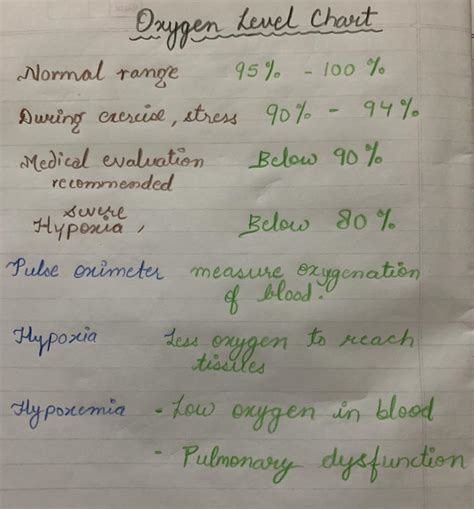 Oxygen Level Chart
Normal range 95% - 100%
During exercise, stress 90% - 94%
Medical evaluation Below 90%
recommended
severe
Hypoxia, Below 80%
Pulse oximeter measure oxygenation
of blood.
Hypoxia Less oxygen to reach
tissues
Hypoxemia - Low oxygen in blood
- Pulmonary dysfunction